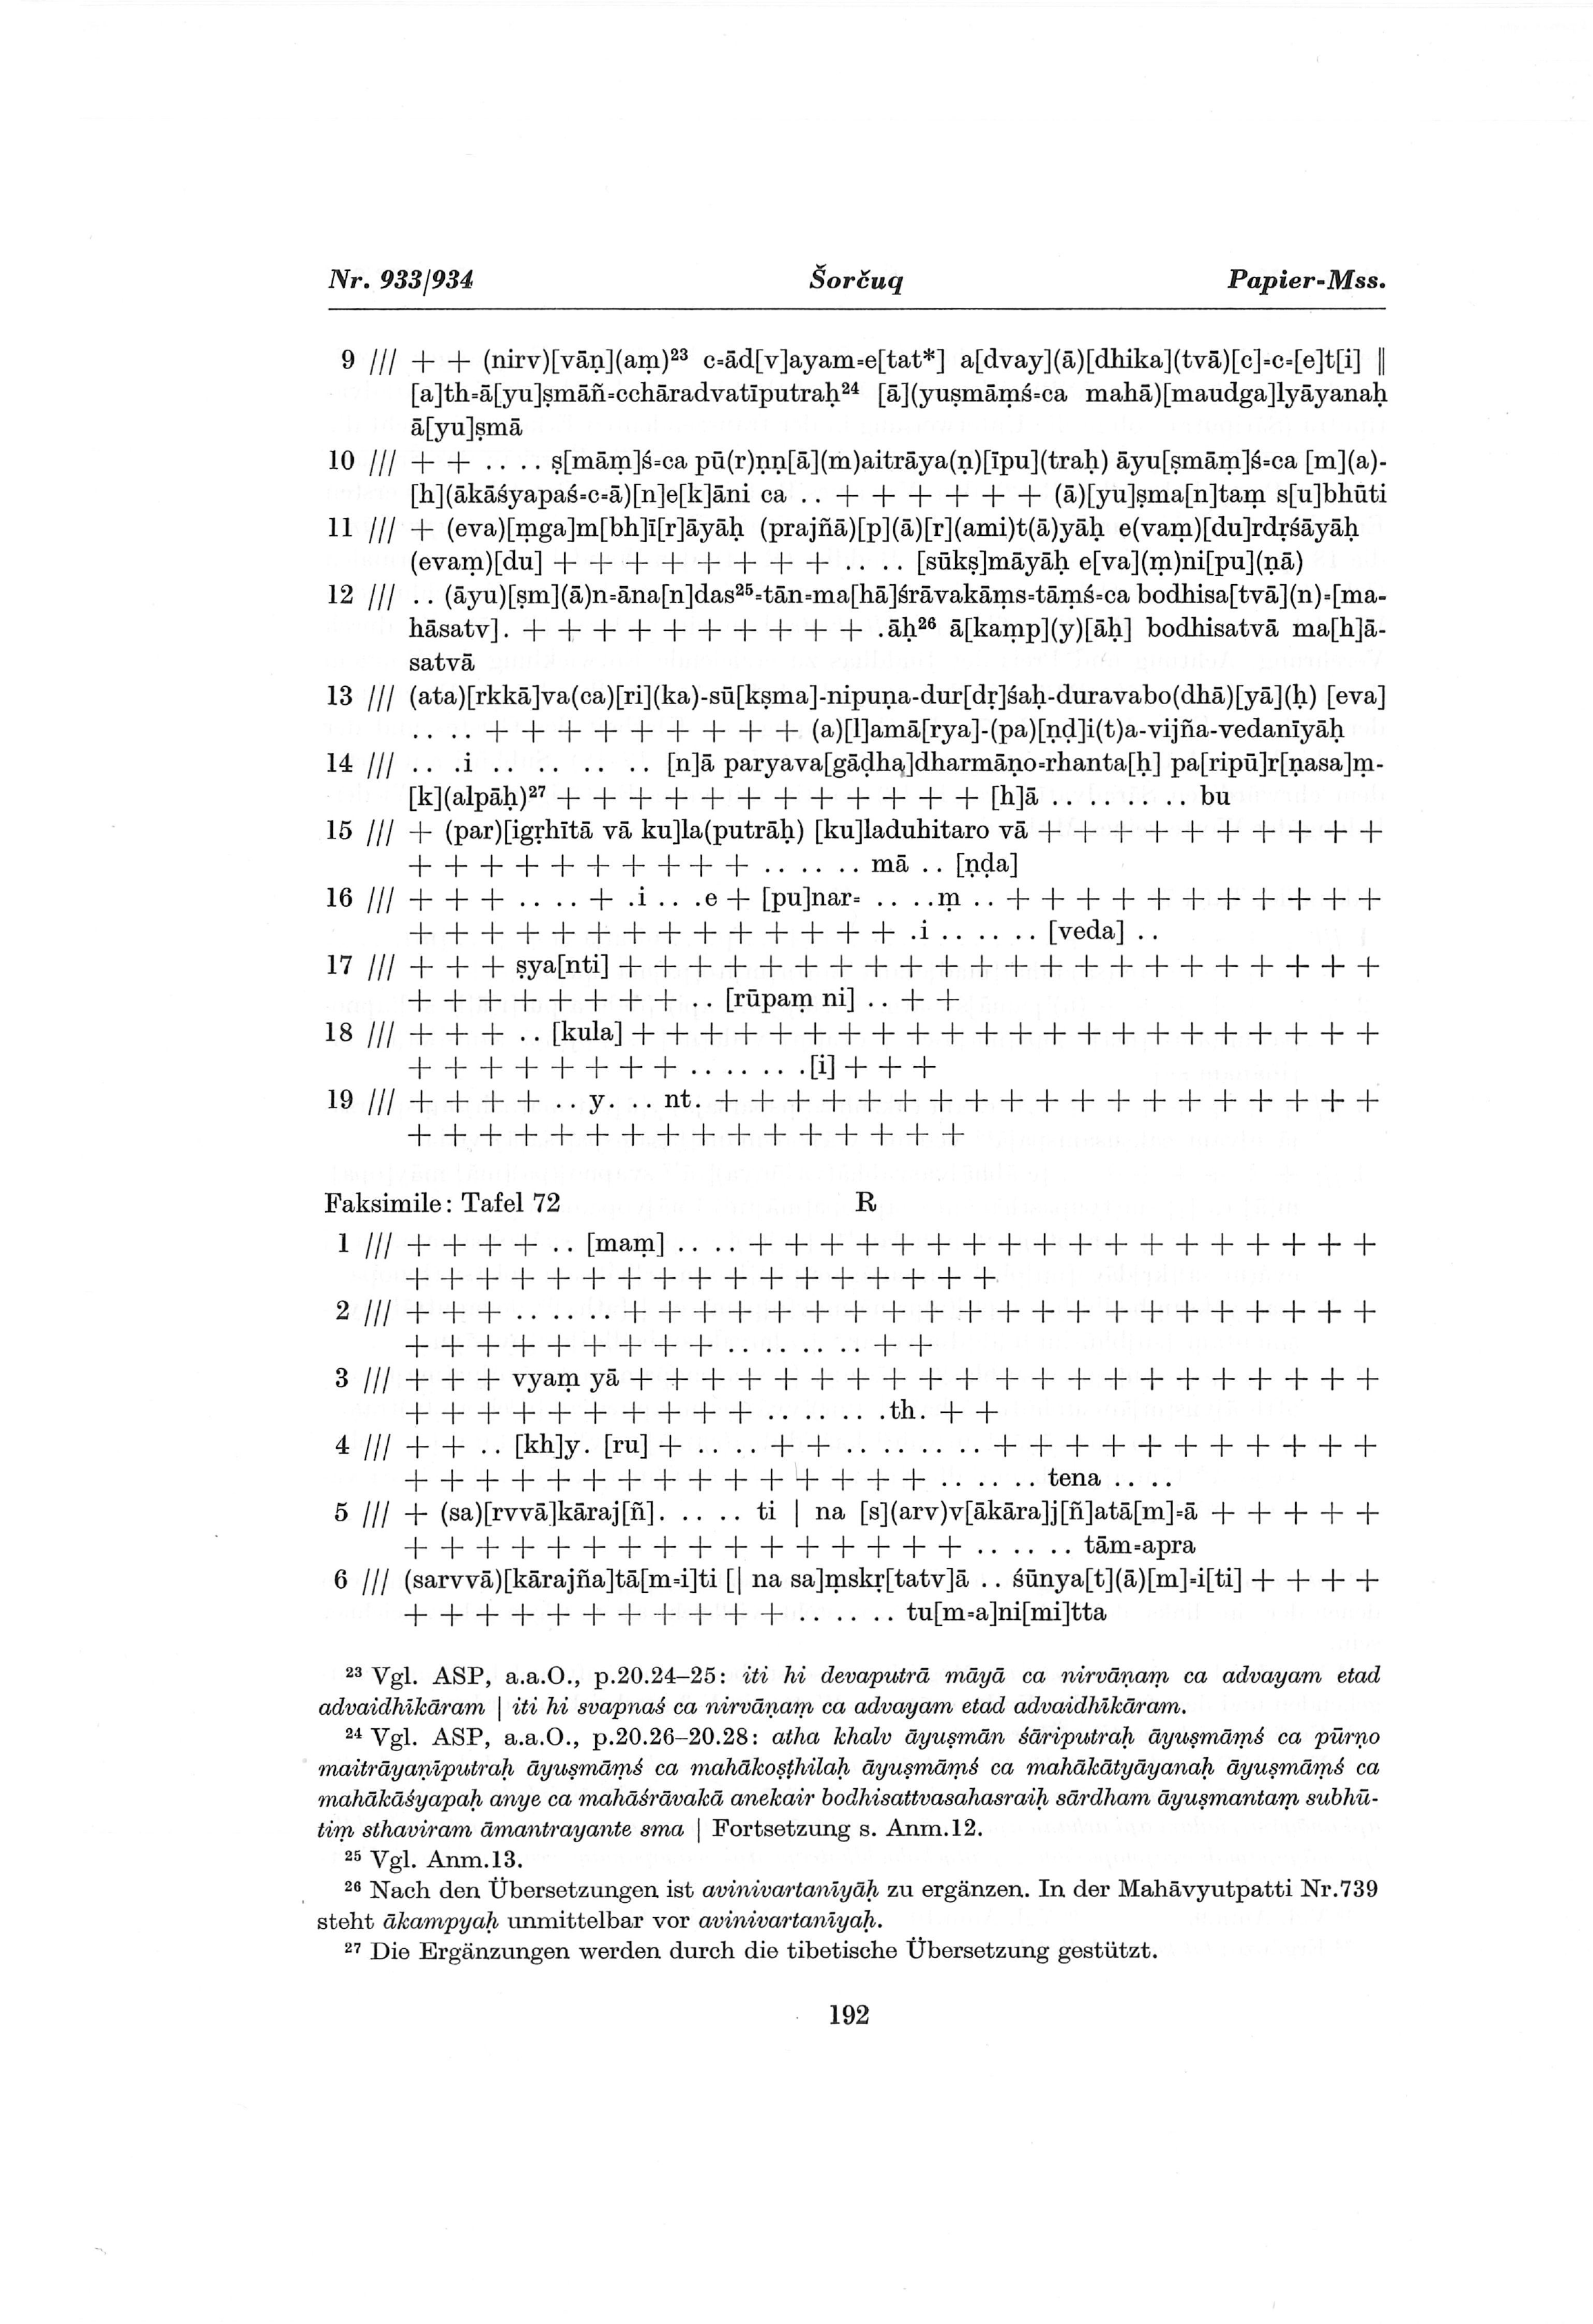 Nr. 933/934 Šorčuq Papier-Mss.
9 /// + + (nirv)[vāṇ](aṃ)²³ c=ād[v]ayam=e[tat*] a[dvay](ā)[dhika](tvā)[c]=c=[e]t[i] ‖
[a]th=ā[yu]ṣmāñ=cchāradvatīputraḥ²⁴ [ā](yuṣmāṃś=ca mahā)[maudga]lyāyanaḥ
ā[yu]ṣmā
10 /// + + .. .. ṣ[māṃ]ś=ca pū(r)ṇṇ[ā](m)aitrāya(ṇ)[īpu](traḥ) āyu[ṣmāṃ]ś=ca [m](a)-
[h](ākāśyapaś=c=ā)[n]e[k]āni ca .. + + + + + + (ā)[yu]ṣma[n]taṃ s[u]bhūti
11 /// + (eva)[ṃga]m[bh]ī[r]āyāḥ (prajñā)[p](ā)[r](ami)t(ā)yāḥ e(vaṃ)[du]rdṛśāyāḥ
(evaṃ)[du] + + + + + + + + .. .. [sūkṣ]māyāḥ e[va](ṃ)ni[pu](ṇā)
12 /// .. (āyu)[ṣm](ā)n=āna[n]das²⁵=tān=ma[hā]śrāvakāṃs=tāṃś=ca bodhisa[tvā](n)=[ma-
hāsatv]. + + + + + + + + + + .āḥ²⁶ ā[kaṃp](y)[āḥ] bodhisatvā ma[h]ā-
satvā
13 /// (ata)[rkkā]va(ca)[ri](ka)-sū[kṣma]-nipuṇa-dur[dṛ]śaḥ-duravabo(dhā)[yā](ḥ) [eva]
.. .. + + + + + + + + + (a)[l]amā[rya]-(pa)[ṇḍ]i(t)a-vijña-vedanīyāḥ
14 /// .. .i .. .. .. .. .. [n]ā paryava[gāḍha]dharmāṇo=rhanta[ḥ] pa[ripū]r[ṇasa]ṃ-
[k](alpāḥ)²⁷ + + + + + + + + + + + + [h]ā .. .. .. .. bu
15 /// + (par)[igṛhītā vā ku]la(putrāḥ) [ku]laduhitaro vā + + + + + + + + + +
+ + + + + + + + + + .. .. .. mā .. [ṇḍa]
16 /// + + + .. .. + .i .. .e + [pu]nar= .. ..ṃ .. + + + + + + + + + + +
+ + + + + + + + + + + + + + .i .. .. .. [veda] ..
17 /// + + + ṣya[nti] + + + + + + + + + + + + + + + + + + + + + +
+ + + + + + + + .. [rūpaṃ ni] .. + +
18 /// + + + .. [kula] + + + + + + + + + + + + + + + + + + + + + +
+ + + + + + + + .. .. .. .[i] + + +
19 /// + + + + .. y. .. nt. + + + + + + + + + + + + + + + + + + +
+ + + + + + + + + + + + + + + +
Faksimile: Tafel 72 R
1 /// + + + + .. [maṃ] .. .. + + + + + + + + + + + + + + + + + +
+ + + + + + + + + + + + + + + + +
2 /// + + + .. .. .. + + + + + + + + + + + + + + + + + + + + +
+ + + + + + + + + .. .. .. .. + +
3 /// + + + vyaṃ yā + + + + + + + + + + + + + + + + + + + + +
+ + + + + + + + + + .. .. .. .th. + +
4 /// + + .. [kh]y. [ru] + .. .. + + .. .. .. .. + + + + + + + + + + +
+ + + + + + + + + + + + + + + .. .. .. tena .. ..
5 /// + (sa)[rvvā]kāraj[ñ]. .. .. ti | na [s](arv)v[ākāra]j[ñ]atā[m]=ā + + + + +
+ + + + + + + + + + + + + + + + .. .. .. tām=apra
6 /// (sarvvā)[kārajña]tā[m=i]ti [| na sa]ṃskṛ[tatv]ā .. śūnya[t](ā)[m]=i[ti] + + + +
+ + + + + + + + + + + .. .. .. tu[m=a]ni[mi]tta
²³ Vgl. ASP, a.a.O., p.20.24–25: iti hi devaputrā māyā ca nirvāṇaṃ ca advayam etad
advaidhīkāram | iti hi svapnaś ca nirvāṇaṃ ca advayam etad advaidhīkāram.
²⁴ Vgl. ASP, a.a.O., p.20.26–20.28: atha khalv āyuṣmān śāriputraḥ āyuṣmāṃś ca pūrṇo
maitrāyaṇīputraḥ āyuṣmāṃś ca mahākoṣṭhilaḥ āyuṣmāṃś ca mahākātyāyanaḥ āyuṣmāṃś ca
mahākāśyapaḥ anye ca mahāśrāvakā anekair bodhisattvasahasraiḥ sārdham āyuṣmantaṃ subhū-
tiṃ sthaviram āmantrayante sma | Fortsetzung s. Anm.12.
²⁵ Vgl. Anm.13.
²⁶ Nach den Übersetzungen ist avinivartanīyāḥ zu ergänzen. In der Mahāvyutpatti Nr.739
steht ākampyaḥ unmittelbar vor avinivartanīyaḥ.
²⁷ Die Ergänzungen werden durch die tibetische Übersetzung gestützt.
192